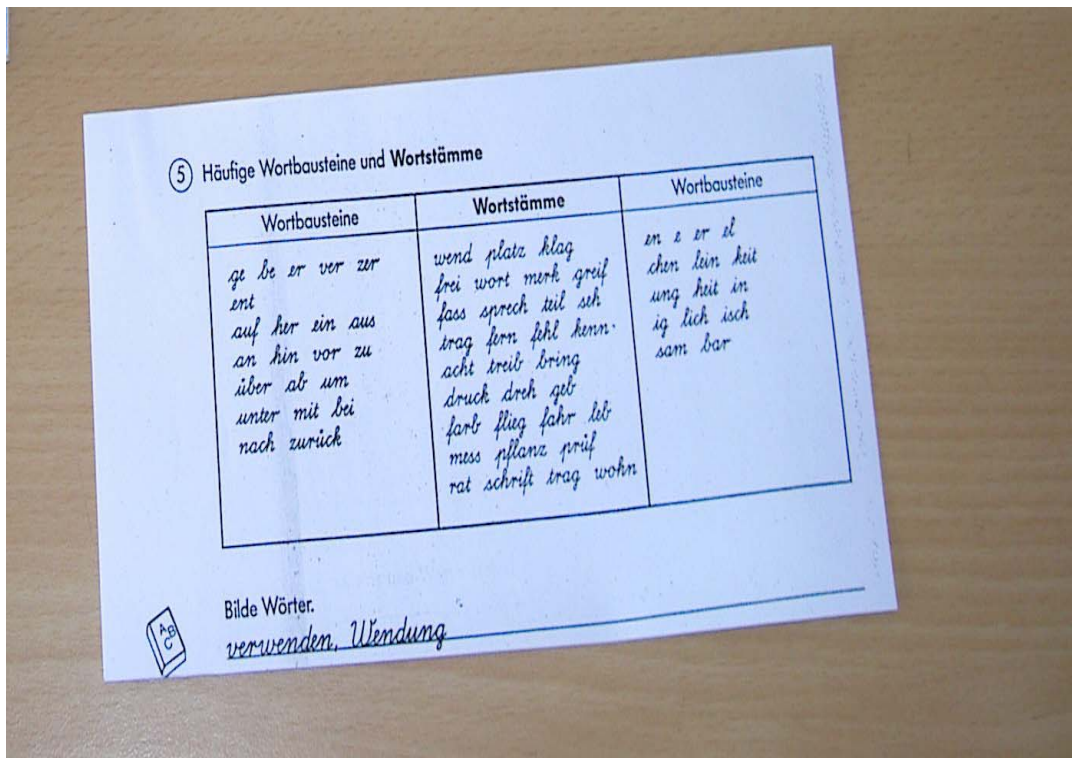 5 Häufige Wortbausteine und Wortstämme
Wortbausteine
ge be er ver zer
ent
auf her ein aus
an hin vor zu
über ab um
unter mit bei
nach zurück
Wortstämme
wend platz klag
frei wort merk greif
fass sprech teil seh
trag fern fehl kenn
acht treib bring
druck dreh geb
farb flieg fahr leb
mess pflanz prüf
rat schrift trag wohn
Wortbausteine
en e er el
chen lein keit
ung heit in
ig lich isch
sam bar
Bilde Wörter.
verwenden, Wendung
A B
C